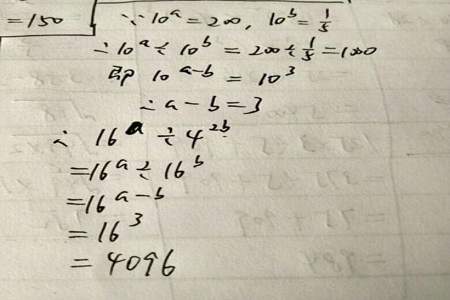 =150
∵10^a=200, 10^b=1/5
∴10^a÷10^b=200÷1/5=1000
即10^(a-b)=10^3
∴a-b=3
∴16^a÷4^(2b)
=16^a÷16^b
=16^(a-b)
=16^3
=4096